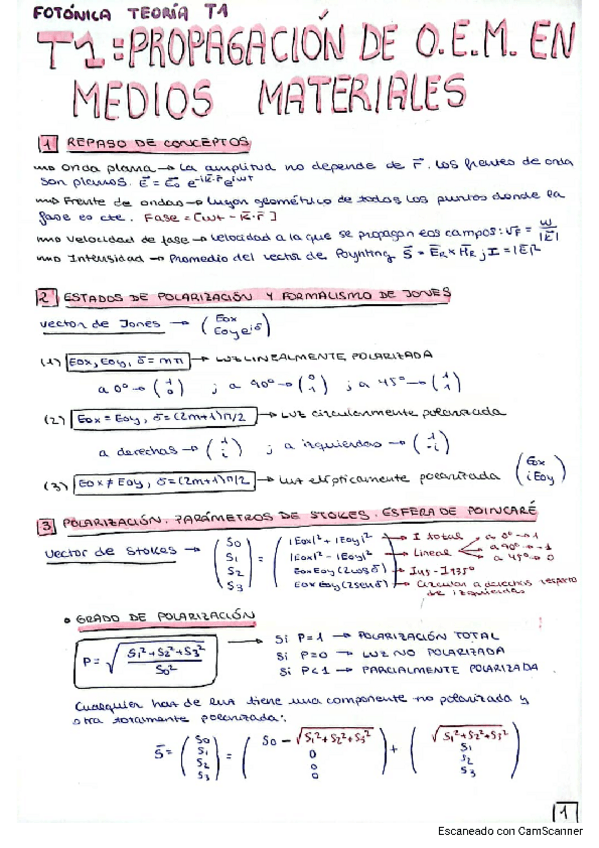 FOTÓNICA TEORÍA T1
T1: PROPAGACIÓN DE O.E.M. EN
MEDIOS MATERIALES
1 REPASO DE CONCEPTOS
Onda plana → La amplitud no depende de r⃗. Los frentes de onda
son planos. E⃗ = E⃗o e^-ik⃗·r⃗ e^iωt
Frente de ondas → Lugar geométrico de todos los puntos donde la
fase es cte. Fase = [ωt - k⃗·r⃗]
Velocidad de fase → velocidad a la que se propagan los campos: VF = ω/|k⃗|
Intensidad → Promedio del vector de Poynting S⃗ = E⃗R × H⃗R ; I = |E⃗|²
2 ESTADOS DE POLARIZACIÓN Y FORMALISMO DE JONES
vector de Jones → (Eox / Eoy e^iδ)
(1) Eox, Eoy, δ = mπ → LUZ LINEALMENTE POLARIZADA
a 0º → (1 / 0) ; a 90º → (0 / 1) ; a 45º → (1 / 1)
(2) Eox = Eoy, δ = (2m+1)π/2 → LUZ circularmente polarizada
a derechas → (1 / i) ; a izquierdas → (1 / -i)
(3) Eox ≠ Eoy, δ = (2m+1)π/2 → Luz elípticamente polarizada (Eox / iEoy)
3 POLARIZACIÓN. PARÁMETROS DE STOKES. ESFERA DE POINCARÉ
Vector de Stokes → (S0 / S1 / S2 / S3) = (|Eox|² + |Eoy|² / |Eox|² - |Eoy|² / EoxEoy(2cosδ) / EoxEoy(2senδ))
→ I total
→ Lineal → a 0º → 1
a 90º → -1
a 45º → 0
→ I45 - I135º
→ Circular a derechas respecto
de izquierdas
• GRADO DE POLARIZACIÓN
P = √((S1² + S2² + S3²) / S0²)
→ Si P = 1 → POLARIZACIÓN TOTAL
Si P = 0 → LUZ NO POLARIZADA
Si P < 1 → PARCIALMENTE POLARIZADA
Cualquier haz de luz tiene una componente no polarizada y
otra totalmente polarizada:
S⃗ = (S0 / S1 / S2 / S3) = (S0 - √(S1² + S2² + S3²) / 0 / 0 / 0) + (√(S1² + S2² + S3²) / S1 / S2 / S3)
1
Escaneado con CamScanner